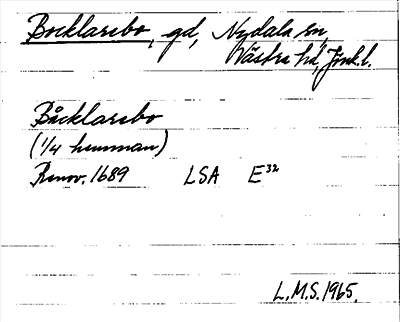 Bocklarebo, gd, Nydala sn,
Västra hd, Jönk.l.
Båcklarebo
(1/4 hemman)
Renov. 1689 LSA E32
L.M.S. 1965.